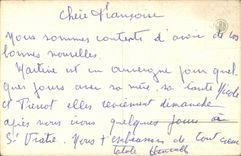 Chère Françoise
Nous sommes contents d'avoir de vos
bonnes nouvelles.
Martine est en auvergne pour quel-
ques jours avec sa mère, sa tante Nicole
et Pierrot elles reviennent dimanche
après nous irons quelques jours à
St Vratre. Nous t embrassons de tout cœur